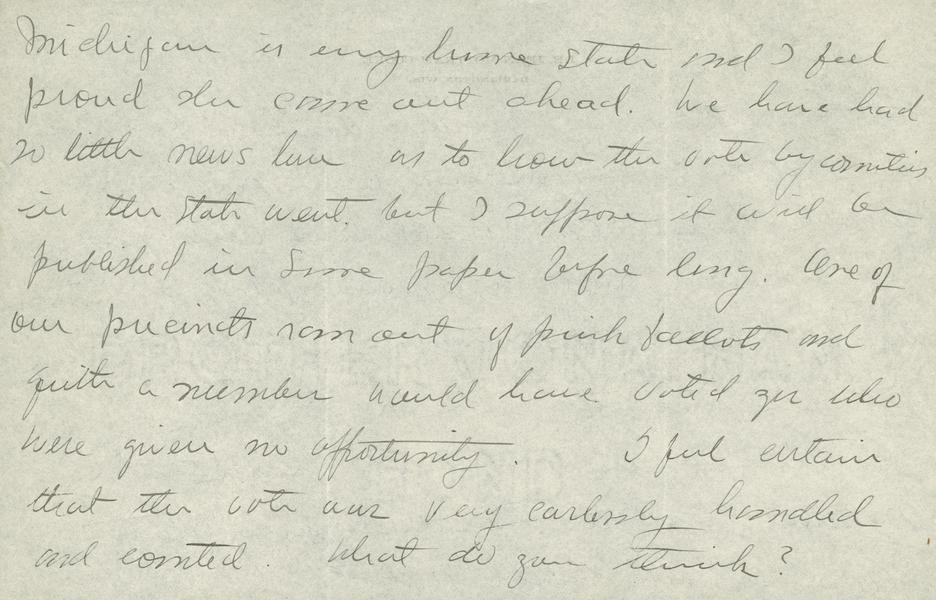 Michigan is my home State and I feel
proud she came out ahead. We have had
so little news here as to how the vote by counties
in the State went. but I suppose it will be
published in some paper before long. One of
our precincts ran out of pink ballots and
quite a number would have voted yes who
were given no opportunity. I feel certain
that the vote was very carlessly handled
and counted. What do you think?